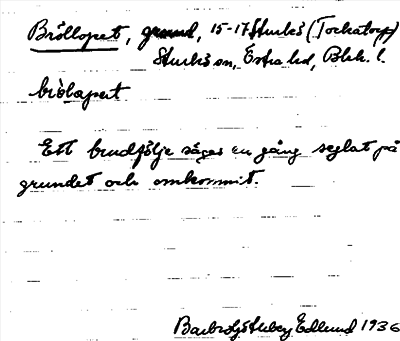 Bröllopet, grund, 15-17 Sturkö (Torhatorp)
Sturkö sn, Östra hd, Blek. l.
brö̀lapət
Ett brudfölje säges en gång seglat på
grundet och omkommit.
Edlund 1936